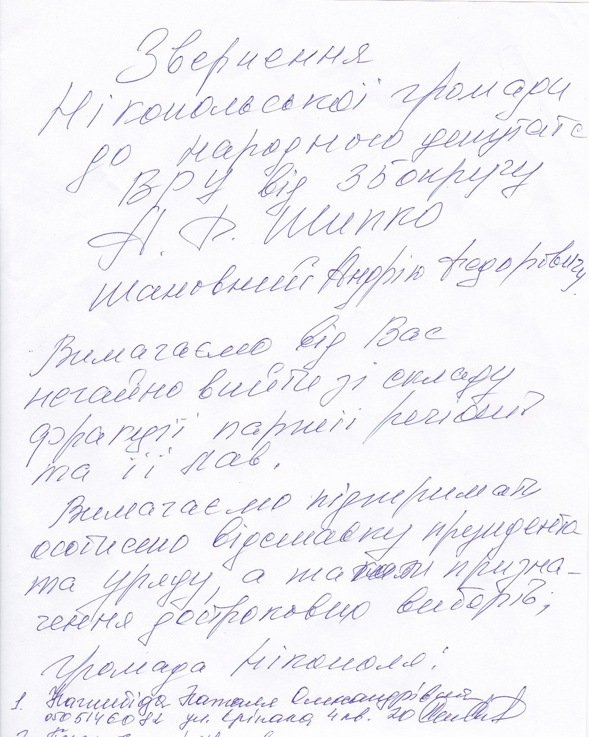 Звернення
Нікопольської громади
до народного депутата
ВРУ від 35 округу
А. Ф. Шипко
Шановний Андрію Федоровичу
Вимагаємо від Вас
негайно вийти зі складу
фракції партії регіонів
та її лав.
Вимагаємо підтримати
особисто відставку президента
та уряду, а також призна-
чення дострокових виборів;
Громада Нікополя:
1. Наталя Олександрівна
кв. 20